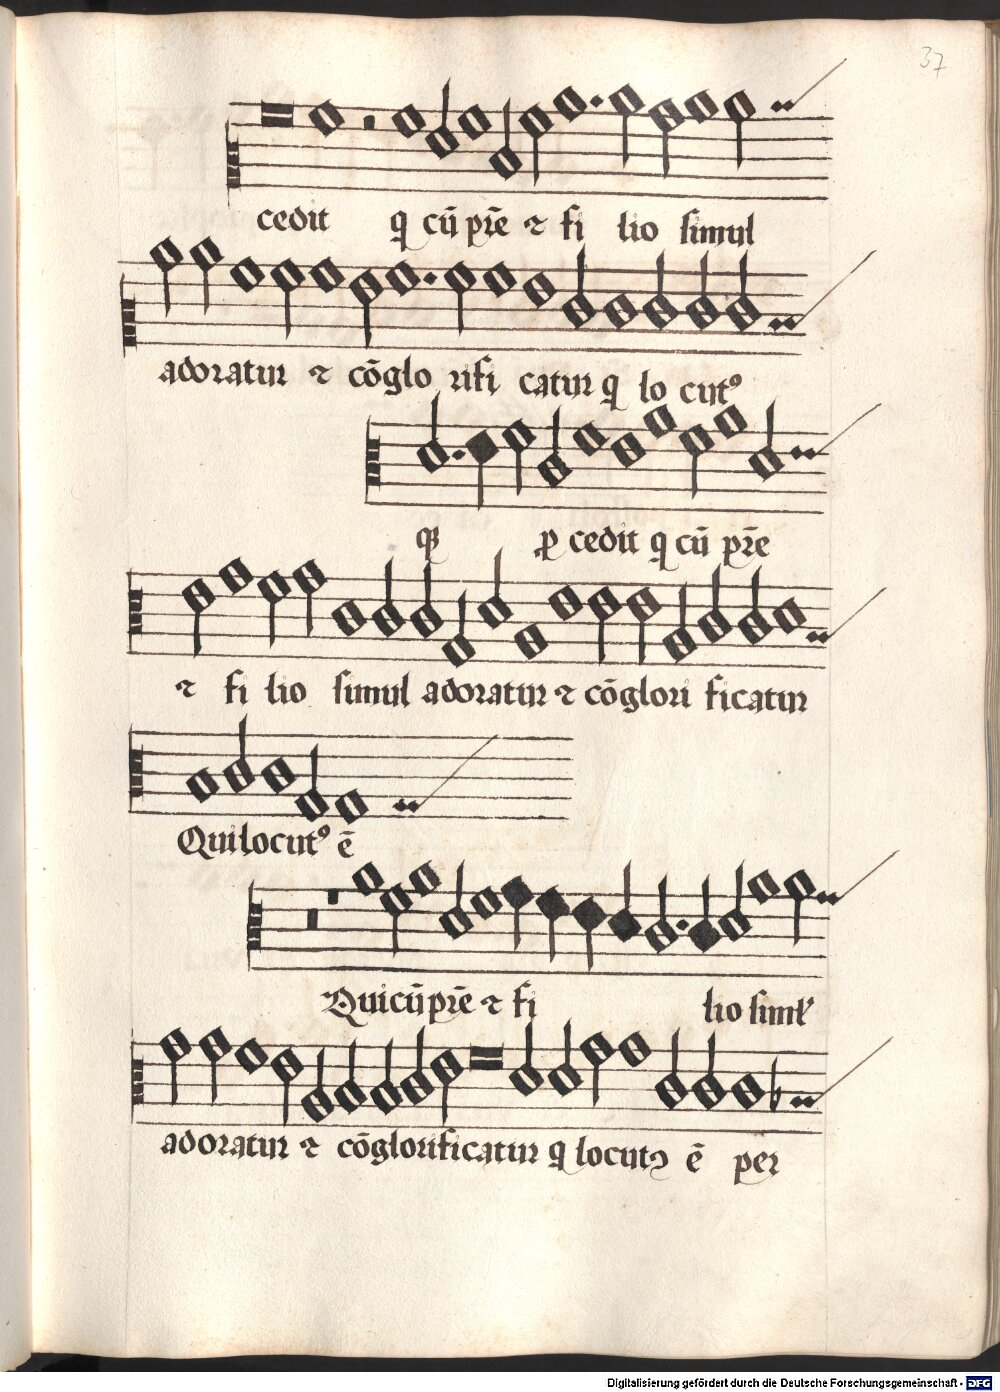 37
cedit q cū pr̄e ⁊ fi lio simul
adoratur ⁊ cōglo rifi catur q lo cutꝰ
Qꝫ ꝓ cedit q cū pr̄e
⁊ fi lio simul adoratur ⁊ cōglori ficatur
Qui locutꝰ ē
Qui cū pr̄e ⁊ fi lio siml̛
adoratur ⁊ cōglorificatur q locutꝰ ē per
Digitalisierung gefördert durch die Deutsche Forschungsgemeinschaft - DFG